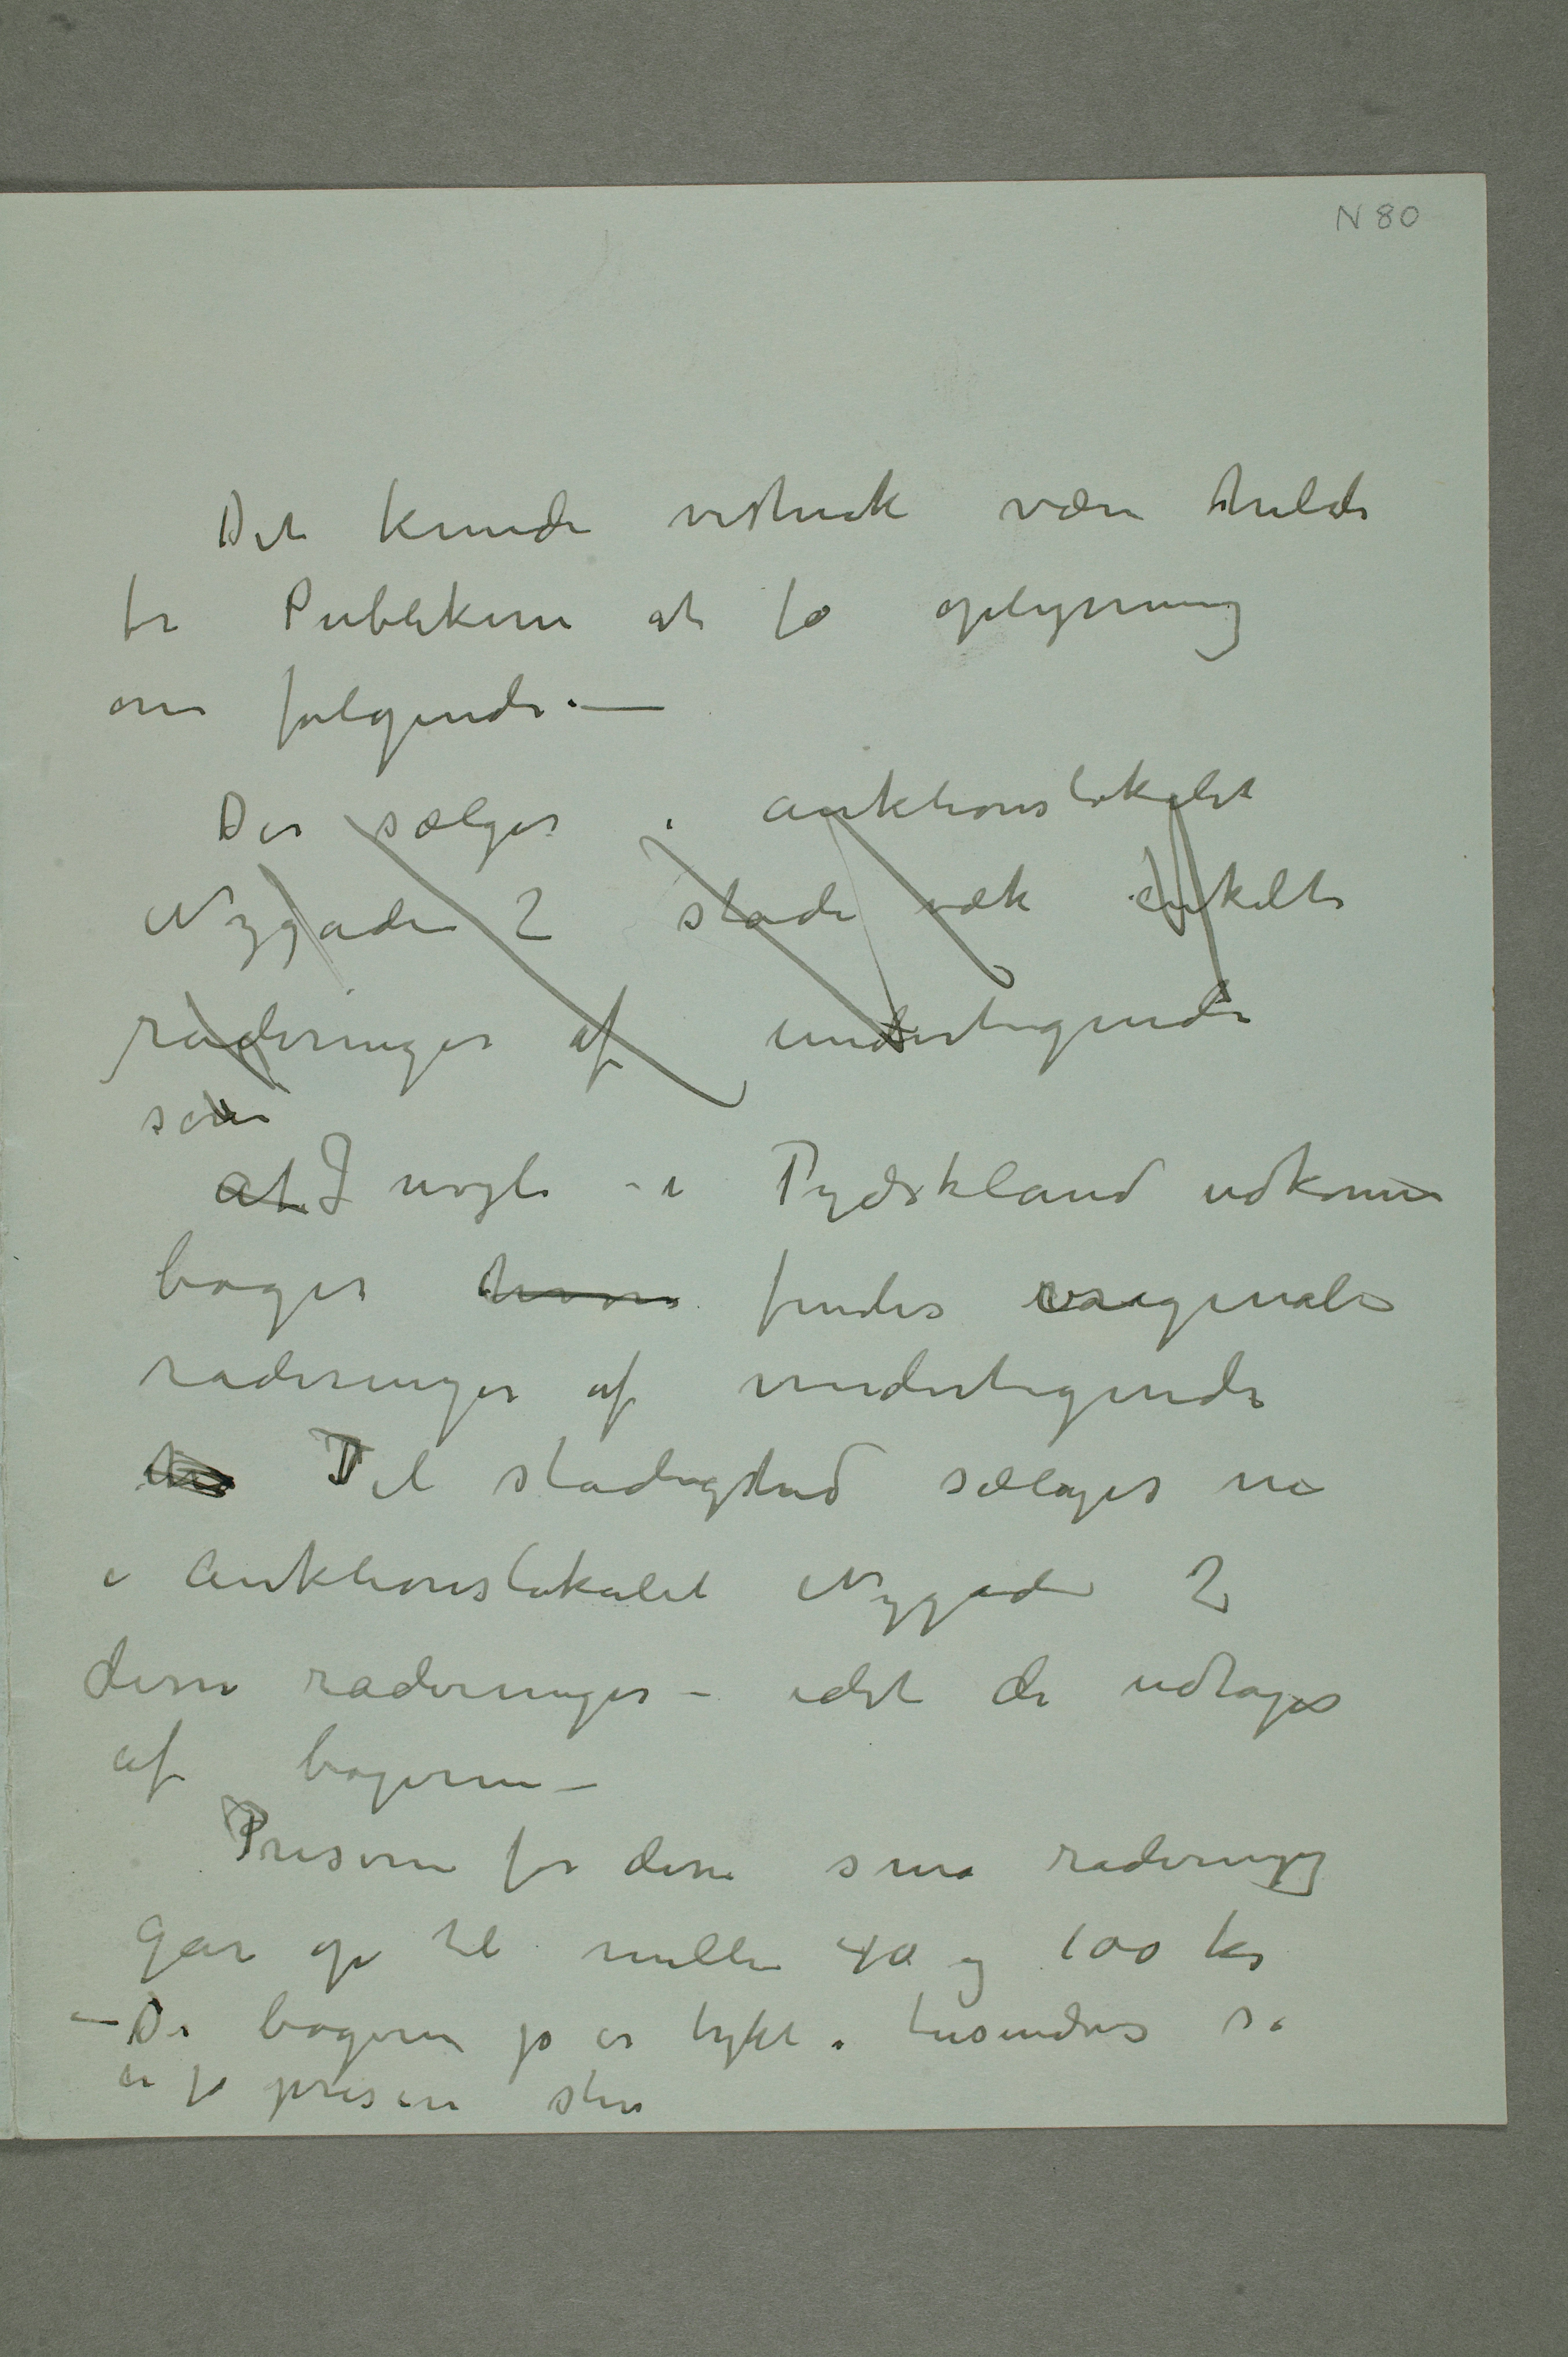 N 80
Det kunde vistnok være heldi
for Publikum at få oplysning
om følgende. —
Der sælges i auktionslokalet
Nygaden 2 stadi væk enkelte
raderinger af undertegnede
som
at I nogle i Tydskland udkomne
bøger hvori findes originale
raderinger af undertegnede
Til stadighed sælges nu
i Auktionslokalet Nygaden 2
disse raderinger – idet de udtages
af bøgerne –
Priserne for disse små raderinger
går op til mellem 40 og 100 kr
— Da bøgerne jo er trykt i tusindvis så
er jo prisen stor